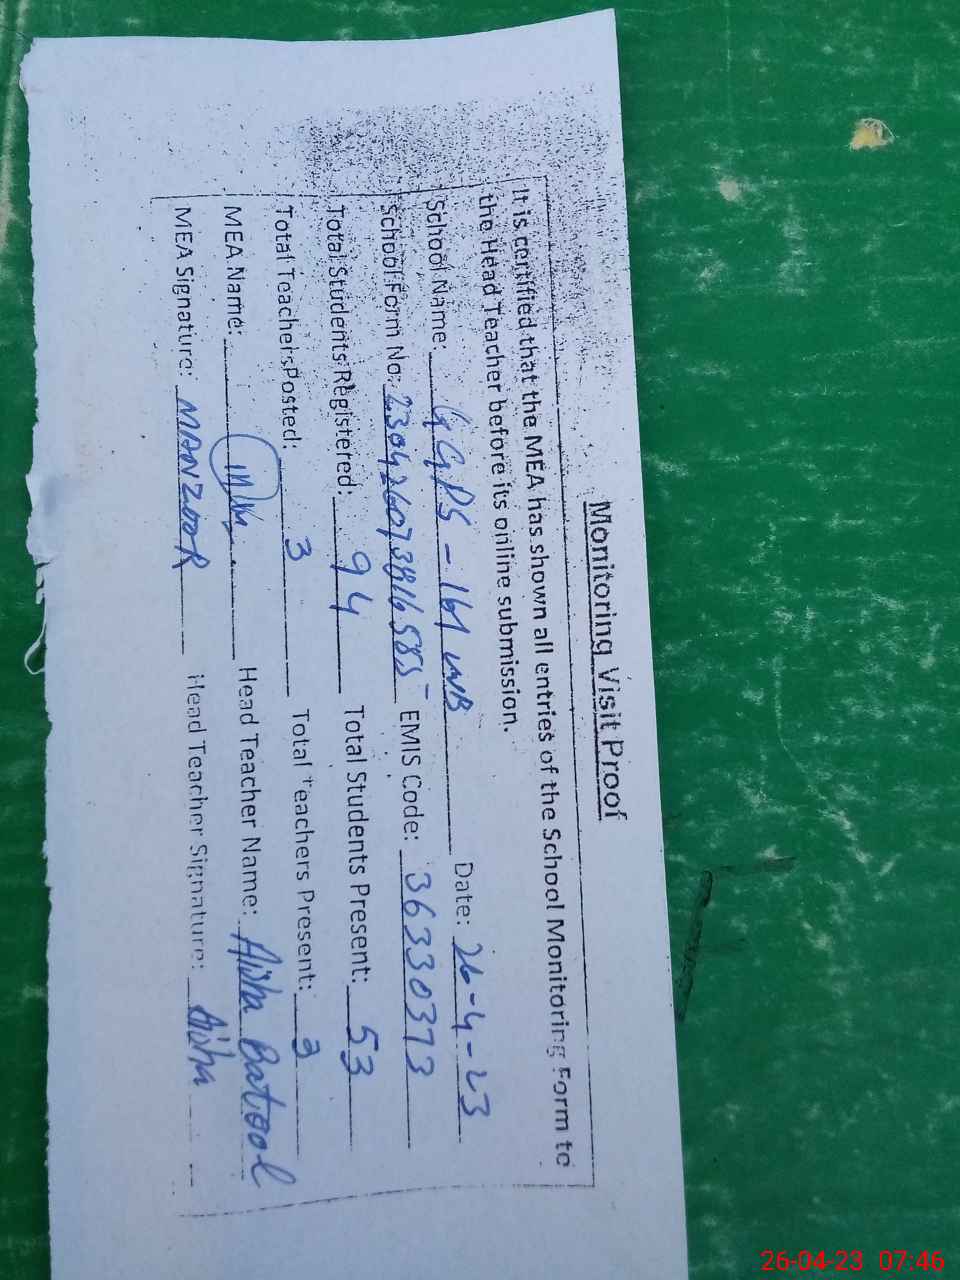 Monitoring Visit Proof
It is certified that the MEA has shown all entries of the School Monitoring Form to
the Head Teacher before its online submission.
School Name: GGPS - 161 WB Date: 26-4-23
School Form No: EMIS Code: 36330373
Total Students Registered: 94 Total Students Present: 53
Total Teachers Posted: 3 Total Teachers Present: 3
MEA Name: Head Teacher Name: Aisha Batool
MEA Signature: MANZOOR Head Teacher Signature: Aisha
26-04-23 07:46